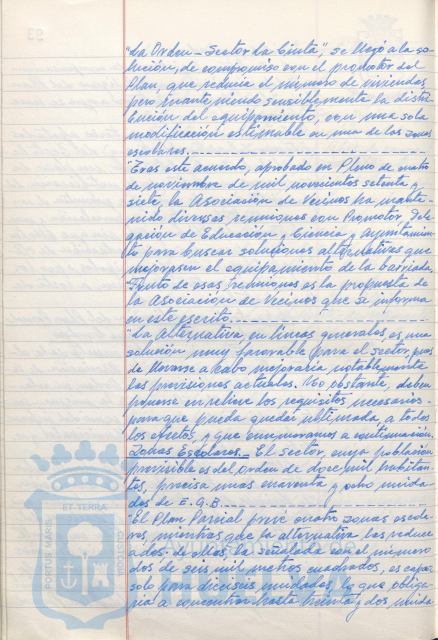 "La Orden - Sector La Cinta" se llegó a la so-
lución, de compromiso con el promotor del
Plan, que reducía el número de viviendas
pero manteniendo sensiblemente la distri-
bución del equipamiento, con una sola
modificación estimable en una de las zonas
escolares.
"Tras este acuerdo, aprobado en Pleno de cuatro
de noviembre de mil novecientos setenta y
siete, la Asociación de Vecinos ha mante-
nido diversas reuniones con Promotor, Dele-
gación de Educación y Ciencia y Ayuntamien-
to para buscar soluciones alternativas que
mejorasen el equipamiento de la barriada.
Fruto de esas reuniones es la propuesta de
la Asociación de Vecinos que se informa
en este escrito.
"La Alternativa, en líneas generales, es una
solución muy favorable para el Sector, pues
de llevarse a cabo mejoraría notablemente
las previsiones actuales. No obstante, deben
ponerse en relieve los requisitos necesarios
para que pueda quedar ultimada, a todos
los efectos, y que enumeramos a continuación.
Zonas Escolares.- El Sector, cuya población
previsible es del orden de doce mil habitan-
tes, precisa unas cuarenta y ocho unida-
des de E.G.B.
"El Plan Parcial prevé cuatro zonas escola-
res, mientras que la alternativa las reduce
a dos. de ellas, la señalada con el número
dos de seis mil metros cuadrados, es capaz
solo para dieciseis unidades, lo que obliga-
ría a concentrar hasta treinta y dos unida
PORTUS MARIS
ET TERRÆ
CUSTODIA
93